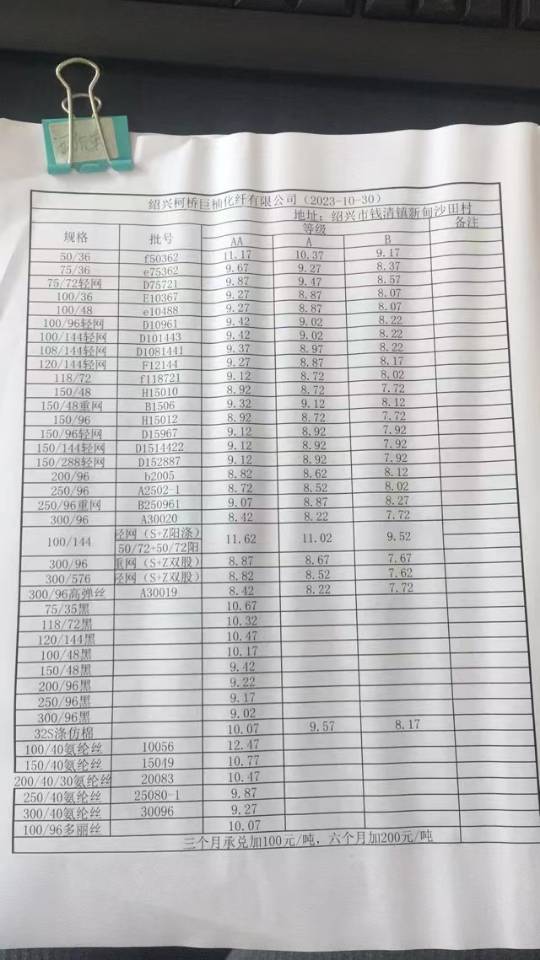 绍兴柯桥巨柚化纤有限公司（2023-10-30）
地址：绍兴市钱清镇新甸沙田村
规格 批号 等级 备注
AA A B
50/36 f50362 11.17 10.37 9.17
75/36 e75362 9.67 9.27 8.37
75/72轻网 D75721 9.87 9.47 8.57
100/36 E10367 9.27 8.87 8.07
100/48 e10488 9.27 8.87 8.07
100/96轻网 D10961 9.42 9.02 8.22
100/144轻网 D101443 9.42 9.02 8.22
108/144轻网 D1081441 9.37 8.97 8.22
120/144轻网 F12144 9.27 8.87 8.17
118/72 f118721 9.12 8.72 8.02
150/48 H15010 8.92 8.72 7.72
150/48重网 B1506 9.32 9.12 8.12
150/96 H15012 8.92 8.72 7.72
150/96轻网 D15967 9.12 8.92 7.92
150/144轻网 D1514422 9.12 8.92 7.92
150/288轻网 D152887 9.12 8.92 7.92
200/96 b2005 8.82 8.62 8.12
250/96 A2502-1 8.72 8.52 8.02
250/96重网 B250961 9.07 8.87 8.27
300/96 A30020 8.42 8.22 7.72
100/144 轻网（S+Z阳涤） 11.62 11.02 9.52
50/72+50/72阳
300/96 重网（S+Z双股） 8.87 8.67 7.67
300/576 轻网（S+Z双股） 8.82 8.52 7.62
300/96高弹丝 A30019 8.42 8.22 7.72
75/35黑 10.67
118/72黑 10.32
120/144黑 10.47
100/48黑 10.17
150/48黑 9.42
200/96黑 9.22
250/96黑 9.17
300/96黑 9.02
32S涤仿棉 10.07 9.57 8.17
100/40氨纶丝 10056 12.47
150/40氨纶丝 15049 10.77
200/40/30氨纶丝 20083 10.47
250/40氨纶丝 25080-1 9.87
300/40氨纶丝 30096 9.27
100/96多丽丝 10.07
三个月承兑加100元/吨，六个月加200元/吨